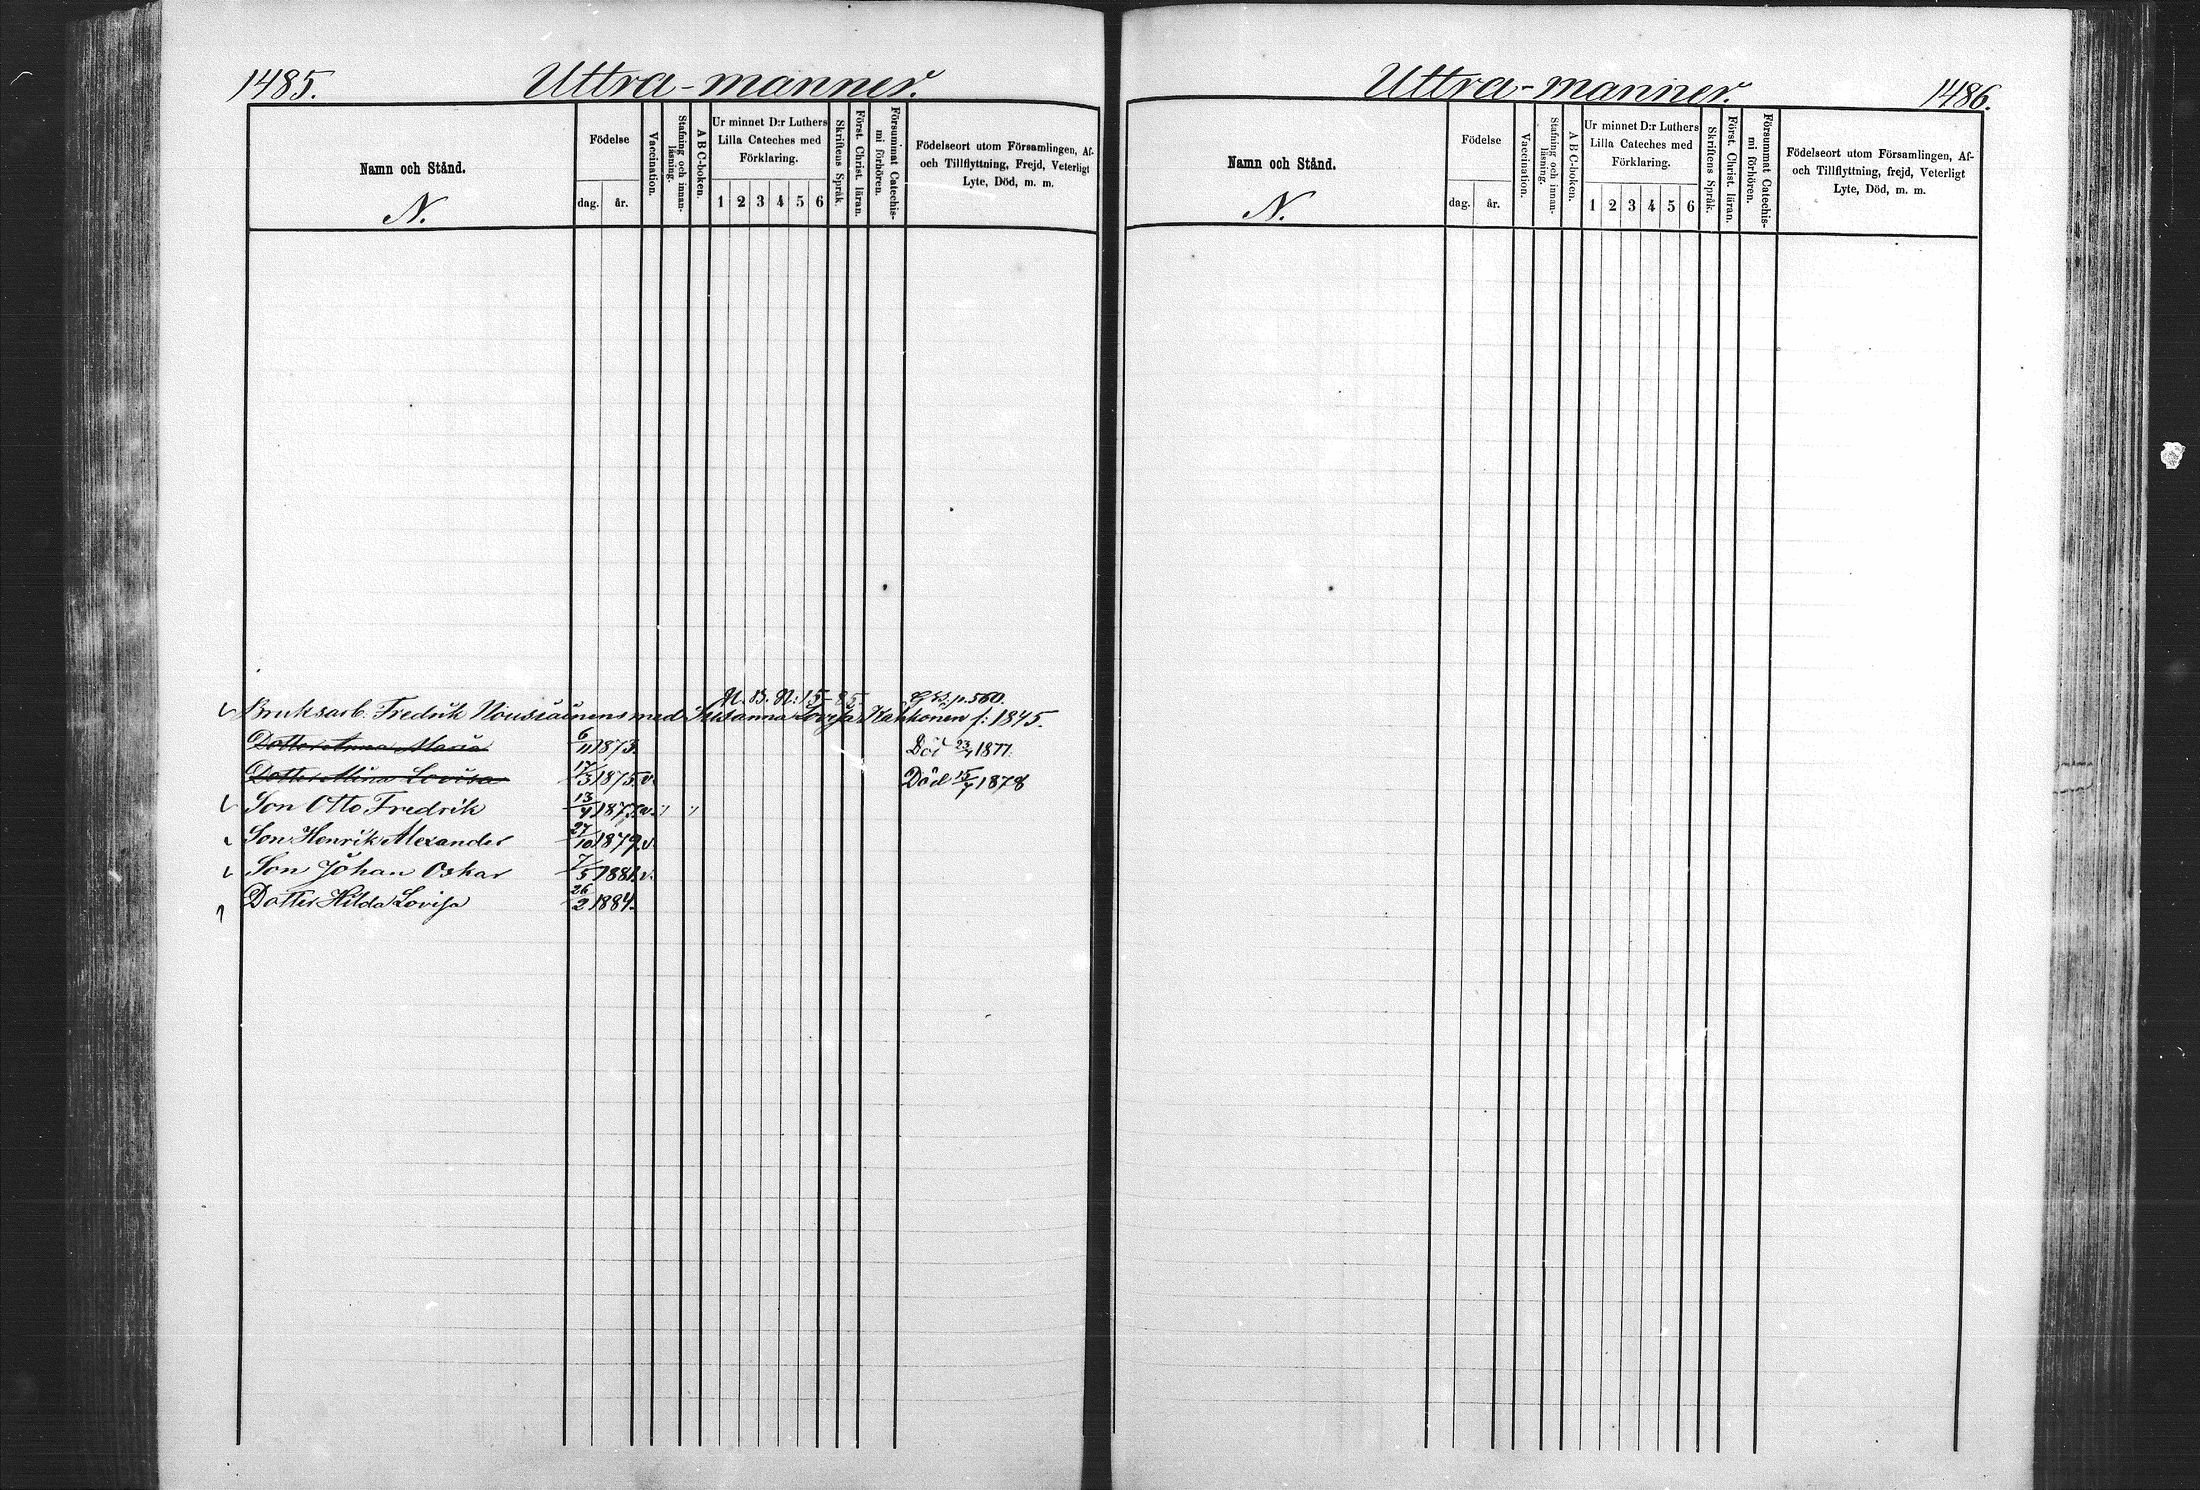 1485. Uttra-männer.
Namn och Stånd.
N.
Födelse
dag. år.
Vaccination.
Stafning och innanläsning.
A B C-boken.
Ur minnet D:r Luthers
Lilla Cateches med
Förklaring.
1 2 3 4 5 6
Skriftens Språk.
Först. Christ. läran.
Försummat Catechismi förhören.
Födelseort utom Församlingen, Af-
och Tillflyttning, Frejd, Veterligt
Lyte, Död, m. m.
N. B. N: 15-85. p. 560.
Bruksarb. Fredrik Nousiainens med Susanna Lovisa Kahkonen f: 1845.
Dotter Anna Maria 6/11 1873. Död 23/7 1877.
Dotter Mina Lovisa 17/3 1875. v. Död 15/7 1878
Son Otto Fredrik 13/4 1877. v.
Son Henrik Alexander 27/10 1879. v.
Son Johan Oskar 7/5 1881. v.
Dotter Hilda Lovisa 26/2 1884.
Uttra-männer. 1486.
Namn och Stånd.
N.
Födelse
dag. år.
Vaccination.
Stafning och innanläsning.
A B C-boken.
Ur minnet D:r Luthers
Lilla Cateches med
Förklaring.
1 2 3 4 5 6
Skriftens Språk.
Först. Christ. läran.
Försummat Catechismi förhören.
Födelseort utom Församlingen, Af-
och Tillflyttning, frejd, Veterligt
Lyte, Död, m. m.